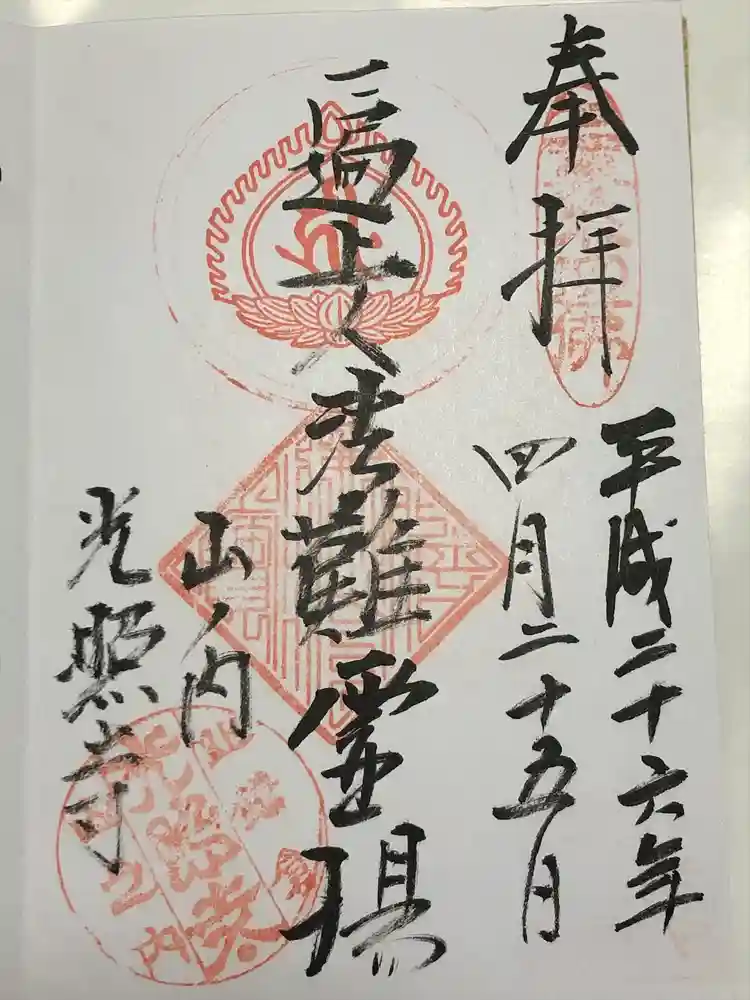 奉拝
平成二十六年
四月二十五日
一遍上人法難霊場
山ノ内
光照寺